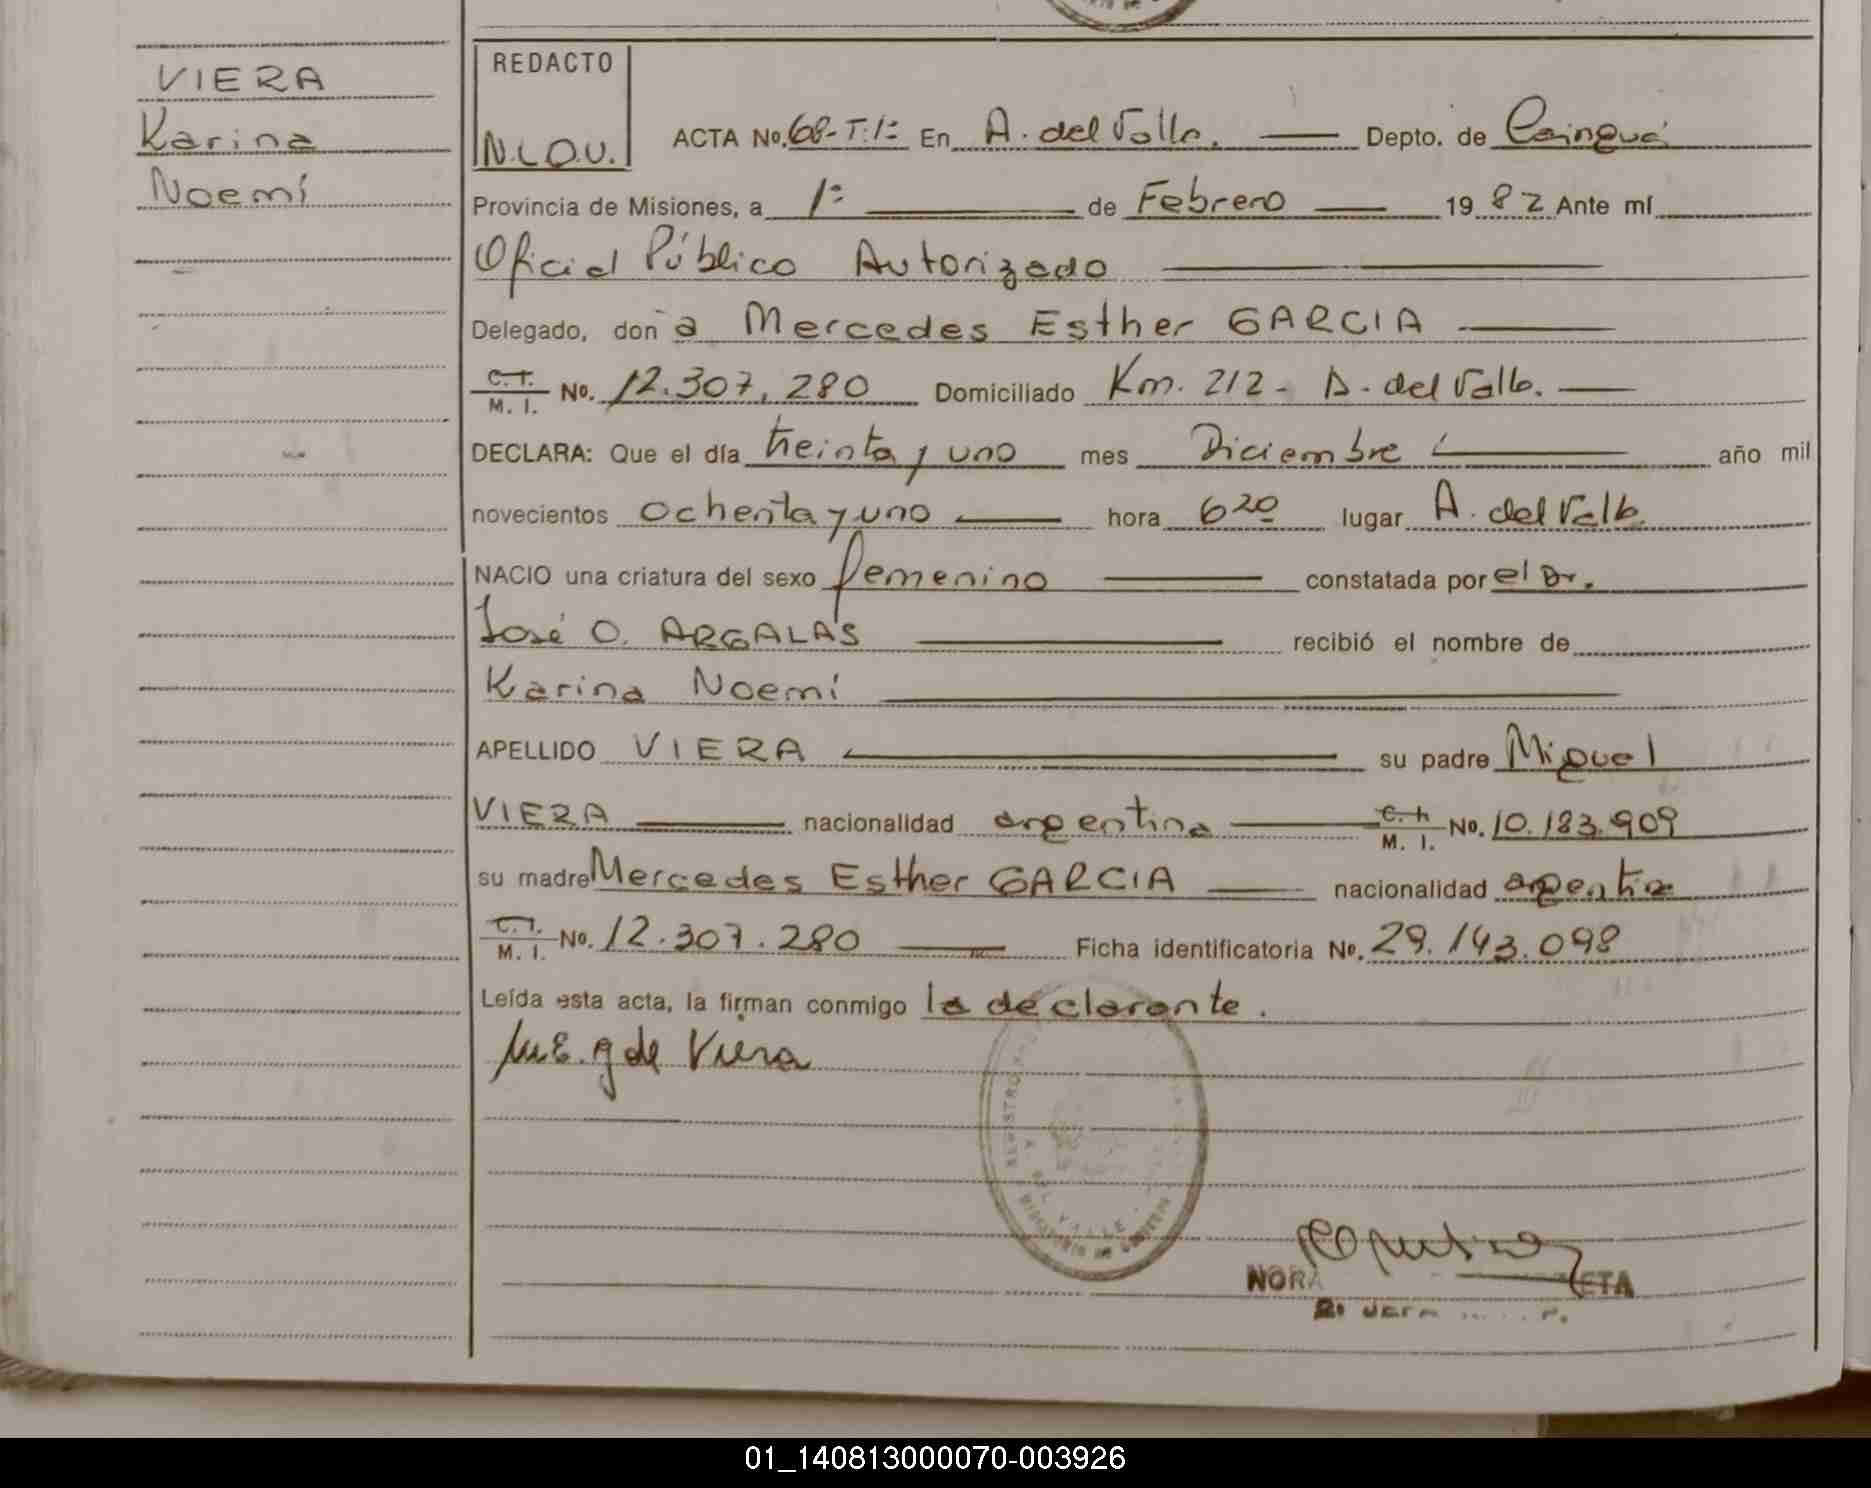 VIERA
Karina
Noemí
REDACTO
N.L.O.V.
ACTA No. 68-T:1: En A. del Valle. Depto. de Cainguá
Provincia de Misiones, a 1: de Febrero 1982 Ante mí
Oficial Público Autorizado
Delegado, don a Mercedes Esther GARCIA
C.I. M. I. No. 12.307.280 Domiciliado Km. 212 - A. del Valle.
DECLARA: Que el día treinta y uno mes Diciembre año mil
novecientos ochenta y uno hora 6 20 lugar A. del Valle
NACIO una criatura del sexo femenino constatada por el Dr.
José O. ARGALAS recibió el nombre de
Karina Noemí
APELLIDO VIERA su padre Miguel
VIERA nacionalidad argentina C.I. M. I. No. 10.183.909
su madre Mercedes Esther GARCIA nacionalidad argentina
C.I. M. I. No. 12.307.280 Ficha identificatoria No. 29.143.098
Leída esta acta, la firman conmigo la declarante.
M.E. g de Viera
REGISTRO
DEL VALLE
NORA ETA
01_140813000070-003926